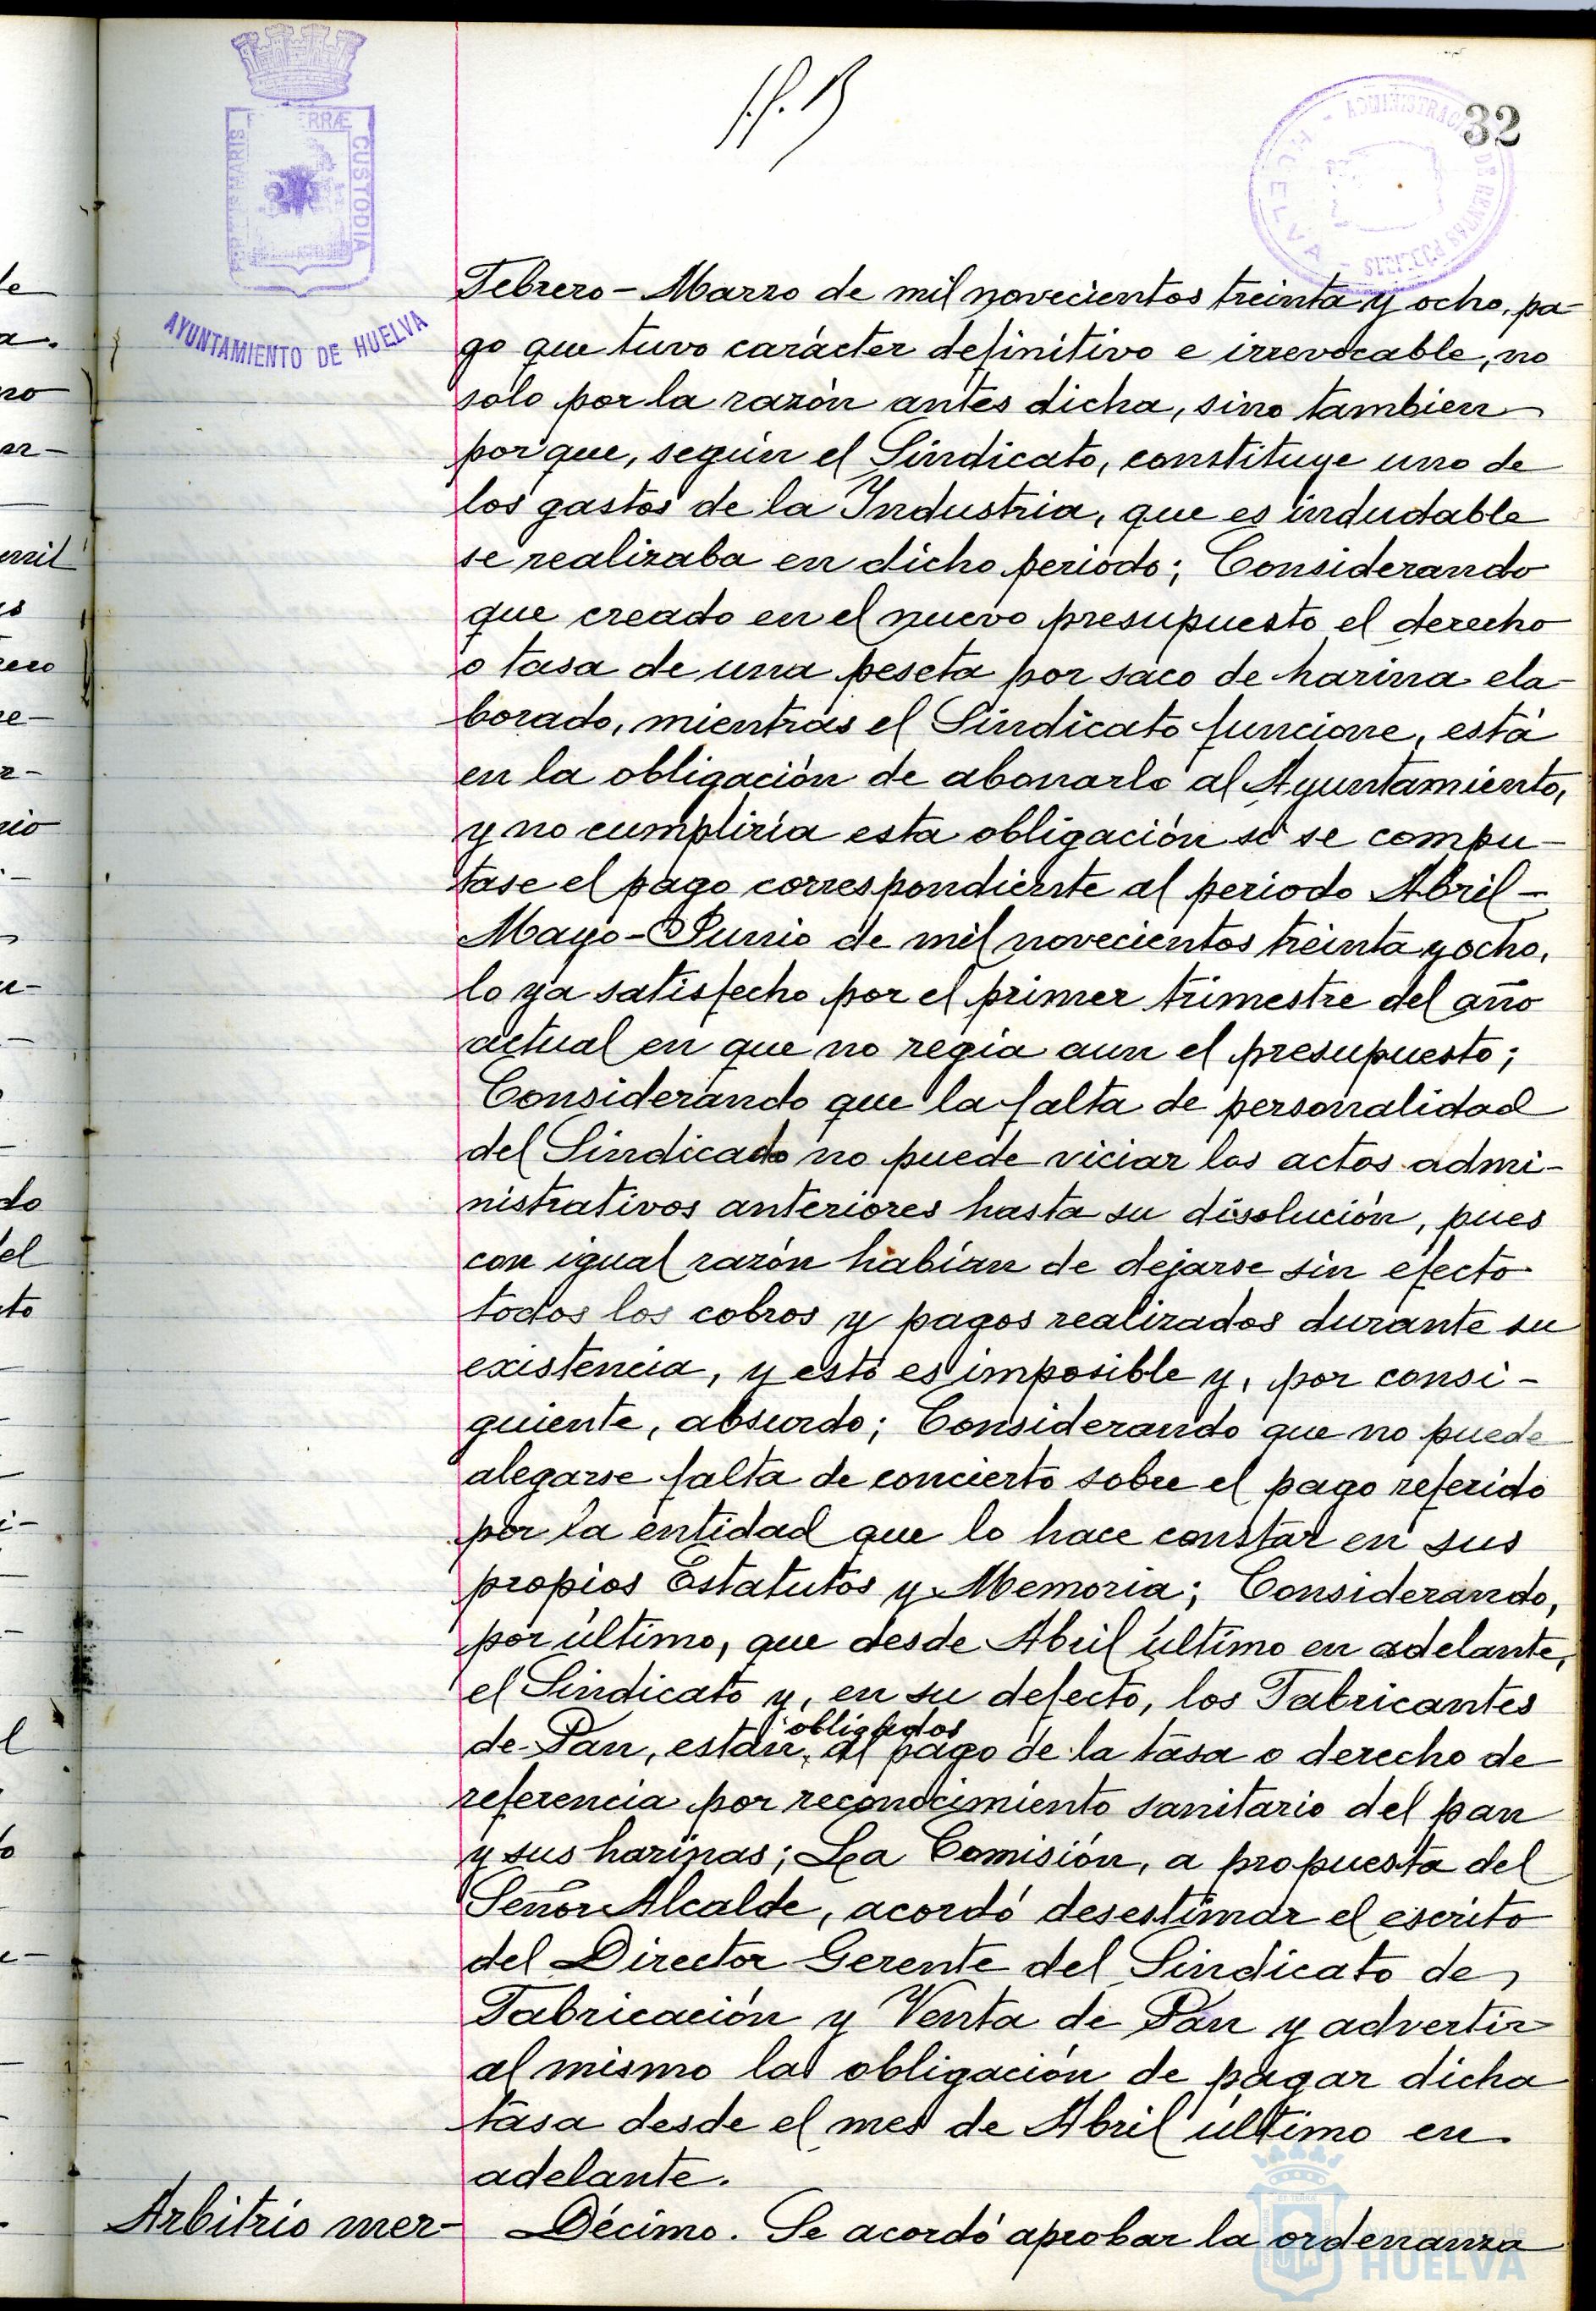 32
AYUNTAMIENTO DE HUELVA
CUSTODIA
Febrero - Marzo de mil novecientos treinta y ocho, pa-
go que tuvo carácter definitivo e irrevocable, no
solo por la razón antes dicha, sino tambien
porque, según el Sindicato, constituye uno de
los gastos de la Industria, que es indudable
se realizaba en dicho periodo; Considerando
que creado en el nuevo presupuesto el derecho
o tasa de una peseta por saco de harina ela-
borado, mientras el Sindicato funcione, está
en la obligación de abonarlo al Ayuntamiento,
y no cumpliría esta obligación si se compu-
tase el pago correspondiente al periodo Abril -
Mayo - Junio de mil novecientos treinta y ocho,
lo ya satisfecho por el primer trimestre del año
actual en que no regía aun el presupuesto;
Considerando que la falta de personalidad
del Sindicado no puede viciar los actos admi-
nistrativos anteriores hasta su disolución, pues
con igual razón habían de dejarse sin efecto
todos los cobros y pagos realizados durante su
existencia, y esto es imposible y, por consi-
guiente, absurdo; Considerando que no puede
alegarse falta de concierto sobre el pago referido
por la entidad que lo hace constar en sus
propios Estatutos y Memoria; Considerando,
por último, que desde Abril último en adelante,
el Sindicato y, en su defecto, los Fabricantes
de Pan, están obligados al pago de la tasa o derecho de
referencia por reconocimiento sanitario del pan
y sus harinas; La Comisión, a propuesta del
Señor Alcalde, acordó desestimar el escrito
del Director Gerente del Sindicato de
Fabricación y Venta de Pan y advertir
al mismo la obligación de pagar dicha
tasa desde el mes de Abril último en
adelante.
Arbitrio mer- Décimo. Se acordó aprobar la ordenanza
Ayuntamiento de
HUELVA